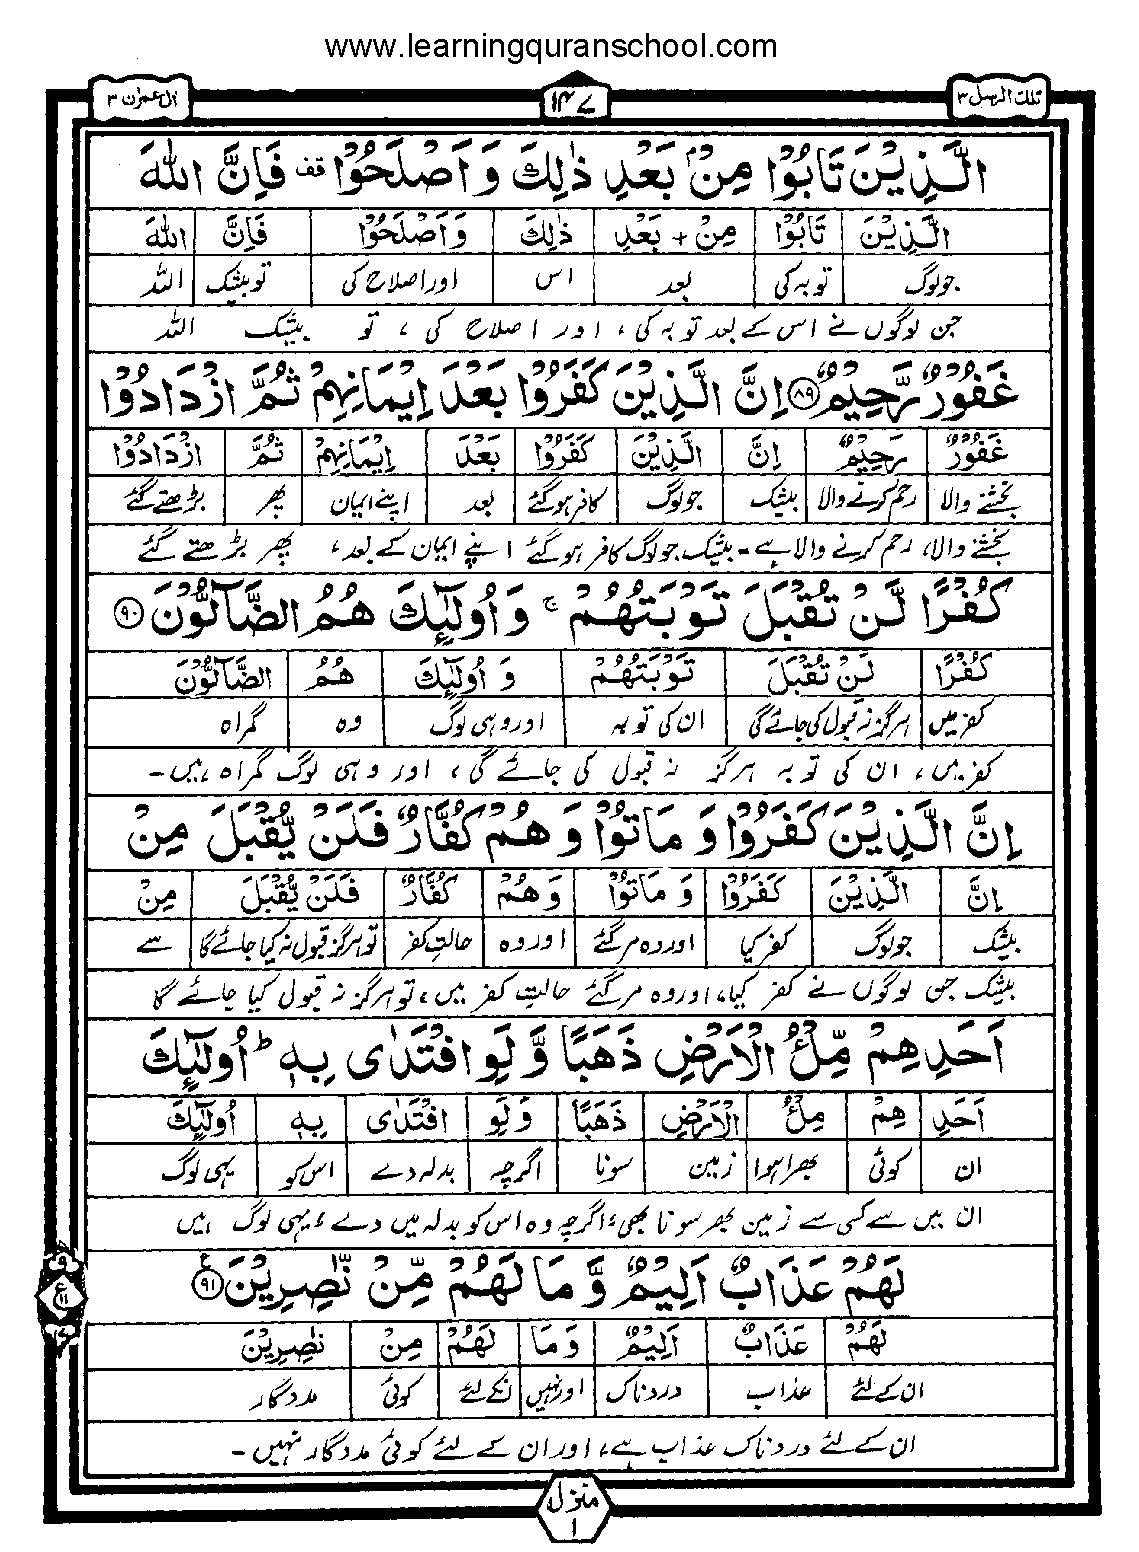 www.learningquranschool.com
تلك الرسل ٣ ۱۴۷ ال عمران ٣
الَّذِيْنَ تَابُوْا مِنْۢ بَعْدِ ذٰلِكَ وَاَصْلَحُوْا قف فَاِنَّ اللّٰهَ
الَّذِيْنَ تَابُوْا مِنْ + بَعْدِ ذٰلِكَ وَاَصْلَحُوْا فَاِنَّ اللّٰهَ
جو لوگ توبہ کی بعد اس اور اصلاح کی تو بیشک اللہ
جن لوگوں نے اس کے بعد توبہ کی، اور اصلاح کی، تو بیشک اللہ
غَفُوْرٌ رَّحِيْمٌ ۸۹ اِنَّ الَّذِيْنَ كَفَرُوْا بَعْدَ اِيْمَانِهِمْ ثُمَّ ازْدَادُوْا
غَفُوْرٌ رَحِيْمٌ اِنَّ الَّذِيْنَ كَفَرُوْا بَعْدَ اِيْمَانِهِمْ ثُمَّ ازْدَادُوْا
بخشنے والا رحم کرنے والا بیشک جو لوگ کافر ہو گئے بعد اپنے ایمان پھر بڑھتے گئے
بخشنے والا، رحم کرنے والا ہے۔ بیشک جو لوگ کافر ہو گئے اپنے ایمان کے بعد، پھر بڑھتے گئے
كُفْرًا لَّنْ تُقْبَلَ تَوْبَتُهُمْ ج وَاُولٰٓئِكَ هُمُ الضَّآلُّوْنَ ۹۰
كُفْرًا لَنْ تُقْبَلَ تَوْبَتُهُمْ وَ اُولٰٓئِكَ هُمُ الضَّآلُّوْنَ
کفر میں ہرگز نہ قبول کی جائے گی ان کی توبہ اور وہی لوگ وہ گمراہ
کفر میں، ان کی توبہ ہرگز نہ قبول کی جائے گی، اور وہی لوگ گمراہ ہیں۔
اِنَّ الَّذِيْنَ كَفَرُوْا وَ مَاتُوْا وَ هُمْ كُفَّارٌ فَلَنْ يُّقْبَلَ مِنْ
اِنَّ الَّذِيْنَ كَفَرُوْا وَ مَاتُوْا وَ هُمْ كُفَّارٌ فَلَنْ يُّقْبَلَ مِنْ
بیشک جو لوگ کفر کیا اور وہ مر گئے اور وہ حالتِ کفر تو ہرگز قبول نہ کیا جائے گا سے
بیشک جن لوگوں نے کفر کیا، اور وہ مر گئے حالتِ کفر میں، تو ہرگز نہ قبول کیا جائے گا
اَحَدِهِمْ مِّلْءُ الْاَرْضِ ذَهَبًا وَّ لَوِ افْتَدٰى بِهٖ ط اُولٰٓئِكَ
اَحَدِ هِمْ مِلْءُ الْاَرْضِ ذَهَبًا وَ لَوِ افْتَدٰى بِهٖ اُولٰٓئِكَ
ان کوئی بھرا ہوا زمین سونا اگرچہ بدلہ دے اس کو یہی لوگ
ان میں سے کسی سے زمین بھر سونا بھی، اگرچہ وہ اس کو بدلہ میں دے، یہی لوگ ہیں
لَهُمْ عَذَابٌ اَلِيْمٌ وَّ مَا لَهُمْ مِّنْ نّٰصِرِيْنَ ع ۹۱
لَهُمْ عَذَابٌ اَلِيْمٌ وَ مَا لَهُمْ مِنْ نٰصِرِيْنَ
ان کے لئے عذاب دردناک اور نہیں انکے لئے کوئی مددگار
ان کے لئے دردناک عذاب ہے، اور ان کے لئے کوئی مددگار نہیں۔
منزل
۱